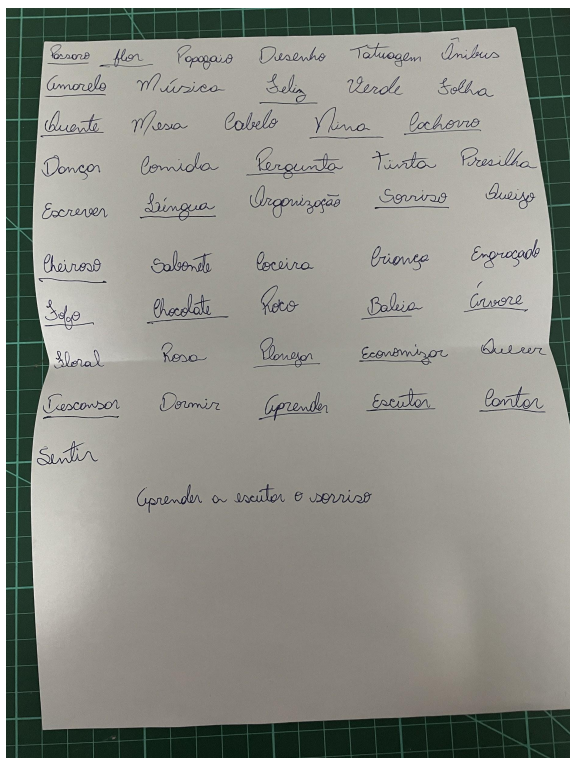 Passaro flor Papagaio Desenho Tatuagem Ônibus
Amarelo Música Feliz Verde Folha
Quente Mesa Cabelo Nina Cachorro
Dançar Comida Pergunta Tinta Presilha
Escrever Língua Organização Sorriso Queijo
Cheiroso Sabonete Coceira Criança Engraçado
Fofo Chocolate Roxo Baleia Árvore
Floral Rosa Planejar Economizar Querer
Descansar Dormir Aprender Escutar Cantar
Sentir
Aprender a escutar o sorriso